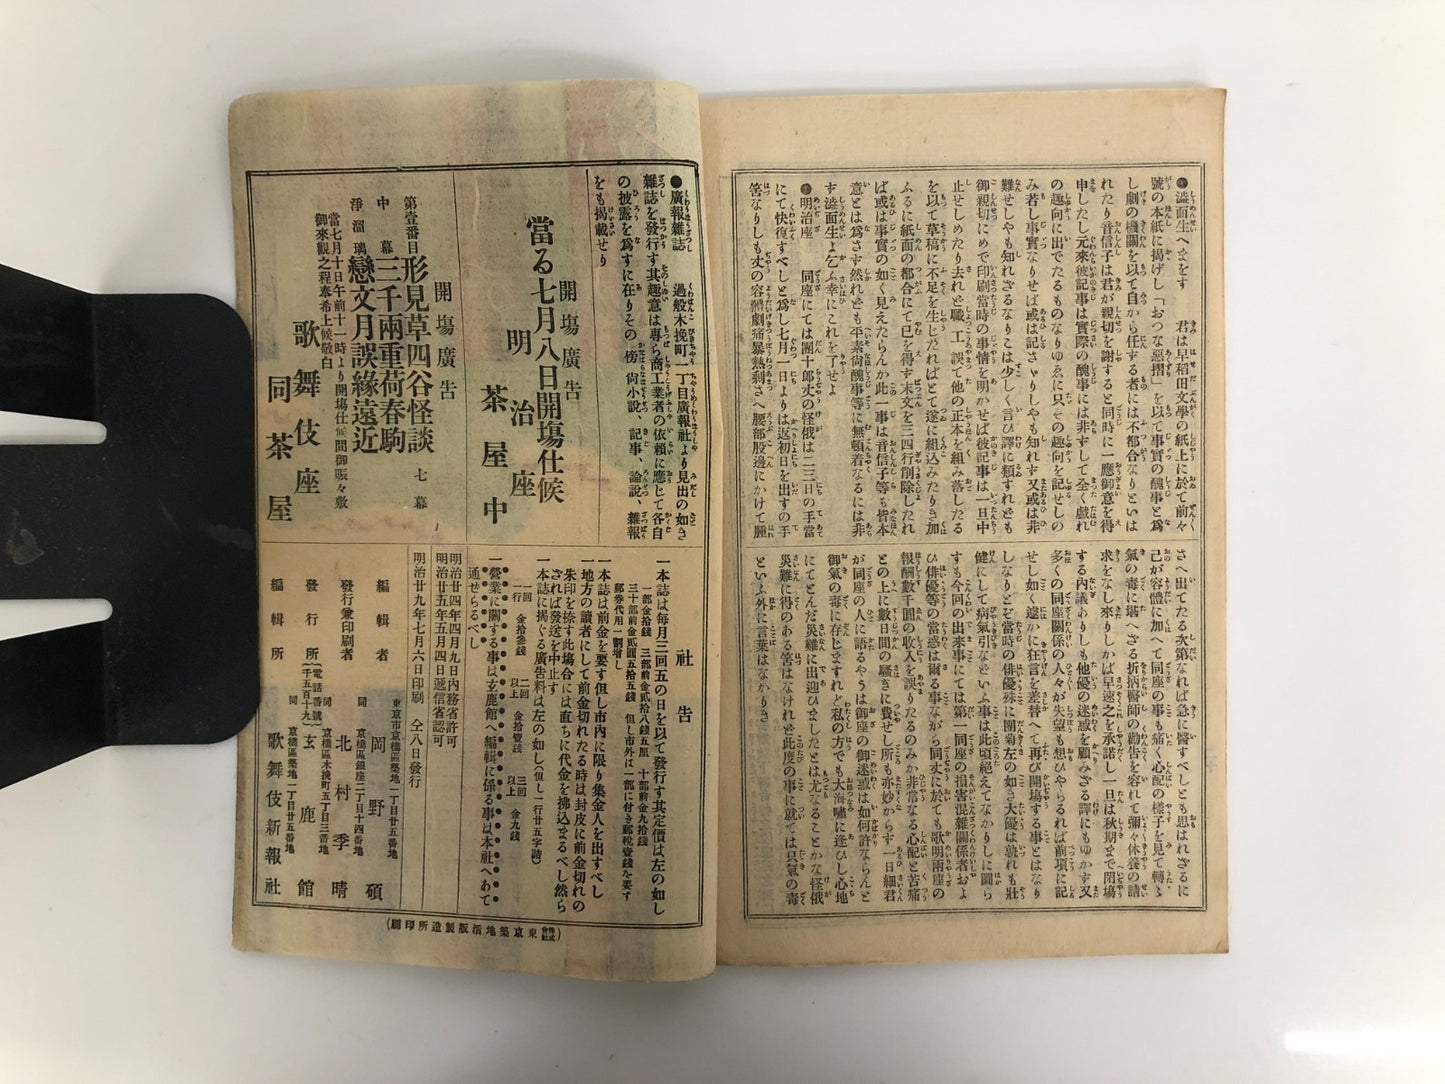 ●澁面生へまをす　君は早稻田文學の紙上に於て前々
號の本紙に揭げし「おつな惡摺」を以て事實の醜事と爲
し劇の機關を以て自から任する者には不都合なりといは
れたり音信子は君が親切を謝すると同時に一應御意を得
申したし元來彼記事は實際の醜事には非すして全く戲れ
の趣向に出でたるものなりゆゑに只その趣向を記せしの
み若し事實なりせば或は記さゞりしやも知れす又或は非
難せしやも知れざるなりこは少しく言ひ譯に類すれども
御親切にめで印刷當時の事情を明かせば彼記事は一旦中
止せしめたり去れど職工、誤て他の正本を組み落したる
を以て草稿に不足を生したればとて遂に組込みたりき加
ふるに紙面の都合にて已を得す末文を三四行削除したれ
ば或は事實の如く見えたらんか此一事は音信子等も皆本
意とは爲さす然れども平素尙醜事等に無頓着なるには非
す澁面生よ乞ふ幸にこれを了せよ
●明治座　同座にては團十郎丈の怪俄は二三日の手當
にて快復すべしと爲し七月一日よりは返初日を出すの手
筈なりしも丈の容體劇痛暴熱剩さへ腰部股邊にかけて腫
さへ出てたる次第なれば急に醫すべしとも思はれざるに
己が容體に加へて同座の事も痛く心配の樣子を見て轉々
氣の毒に堪へさる折柄醫師の勸告を容れて彌々休養の請
求をなし來りしかば早速之を承諾し一旦は秋期まで閉塲
する內議ありしも他優の迷惑を顧みざる譯にもゆかす又
多くの同座關係の人々が失望も想ひやらるれば前項に記
せし如く遽かに狂言を差替へて再び開塲する事とはなり
しなりとぞ當時の俳優殊に團菊左の如き大優は孰れも壯
健にして病氣引などいふ事は此頃絕えてなかりしに圖ら
すも今回の出來事にては第一同座の損害混雜關係者およ
ひ俳優等の當惑は爾る事ながら同丈に於ても歌明兩座の
報酬數千圓の收入を誤りたるのみか非常なる心配と苦痛
との上に數日間の騷きに費せし所も亦妙からす一日細君
が同座の人に語るやうは御座の御迷惑は如何許ならんと
御氣の毒に存じますれど私の方でも大海嘯に逢ひし心地
にてとんだ災難に出逈ひましたとは尤なることかな怪俄
災難に得のある筈はなけれど此度の事に就ては只氣の毒
といふ外に言葉はなかりき
●廣報雜誌　過般木挽町一丁目廣報社より見出の如き
雜誌を發行す其趣意は專ら商工業者の依賴に應じて各自
の披露を爲すに在りその傍尙小說、記事、論說、雜報
をも揭載せり
開塲廣告
當る七月八日開塲仕候
明治座
茶屋中
開塲廣告
第壹番目　形見草四谷怪談　七幕
中幕　三千兩重荷春駒
淨瑠璃　戀文月誤緣遠近
當七月十日午前十一時より開塲仕候間御賑々敷
御來觀之程奉希上候敬白
歌舞伎座
同茶屋
社告
一本誌は每月三回五の日を以て發行す其定價は左の如し
一部金拾錢　三部前金貳拾八錢五厘　十部前金九拾錢
三十部前金貳圓五拾五錢　但し市外は一部に付き郵稅壹錢を要す
郵券代用一割增し
一本誌は前金を要す但し市內に限り集金人を出すべし
一地方の讀者にして前金切れたる時は封皮に前金切れの
朱印を捺す此塲合には直ちに代金を拂込まるべし然ら
されば發送を中止す
一本誌に揭ぐる廣告料は左の如し（但し一行廿五字詰）
一回　金拾叁錢　二回以上　金拾壹錢　三回以上　金九錢
一行
一營業に關する事は玄鹿館へ編輯に係る事は本社へあて
通せらるべし
明治廿四年四月九日內務省許可
明治廿五年五月四日遞信省認可
明治廿九年七月六日印刷　仝八日發行
東京市京橋區築地一丁目廿五番地
編輯者　岡野碩
同　京橋區銀座二丁目十四番地
發行兼印刷者　北村季晴
同　京橋區木挽町五丁目三番地
發行所（電話番號千五百十九）玄鹿館
同　京橋區築地一丁目廿五番地
編輯所　歌舞伎新報社
（株式會社東京築地活版製造所印刷）